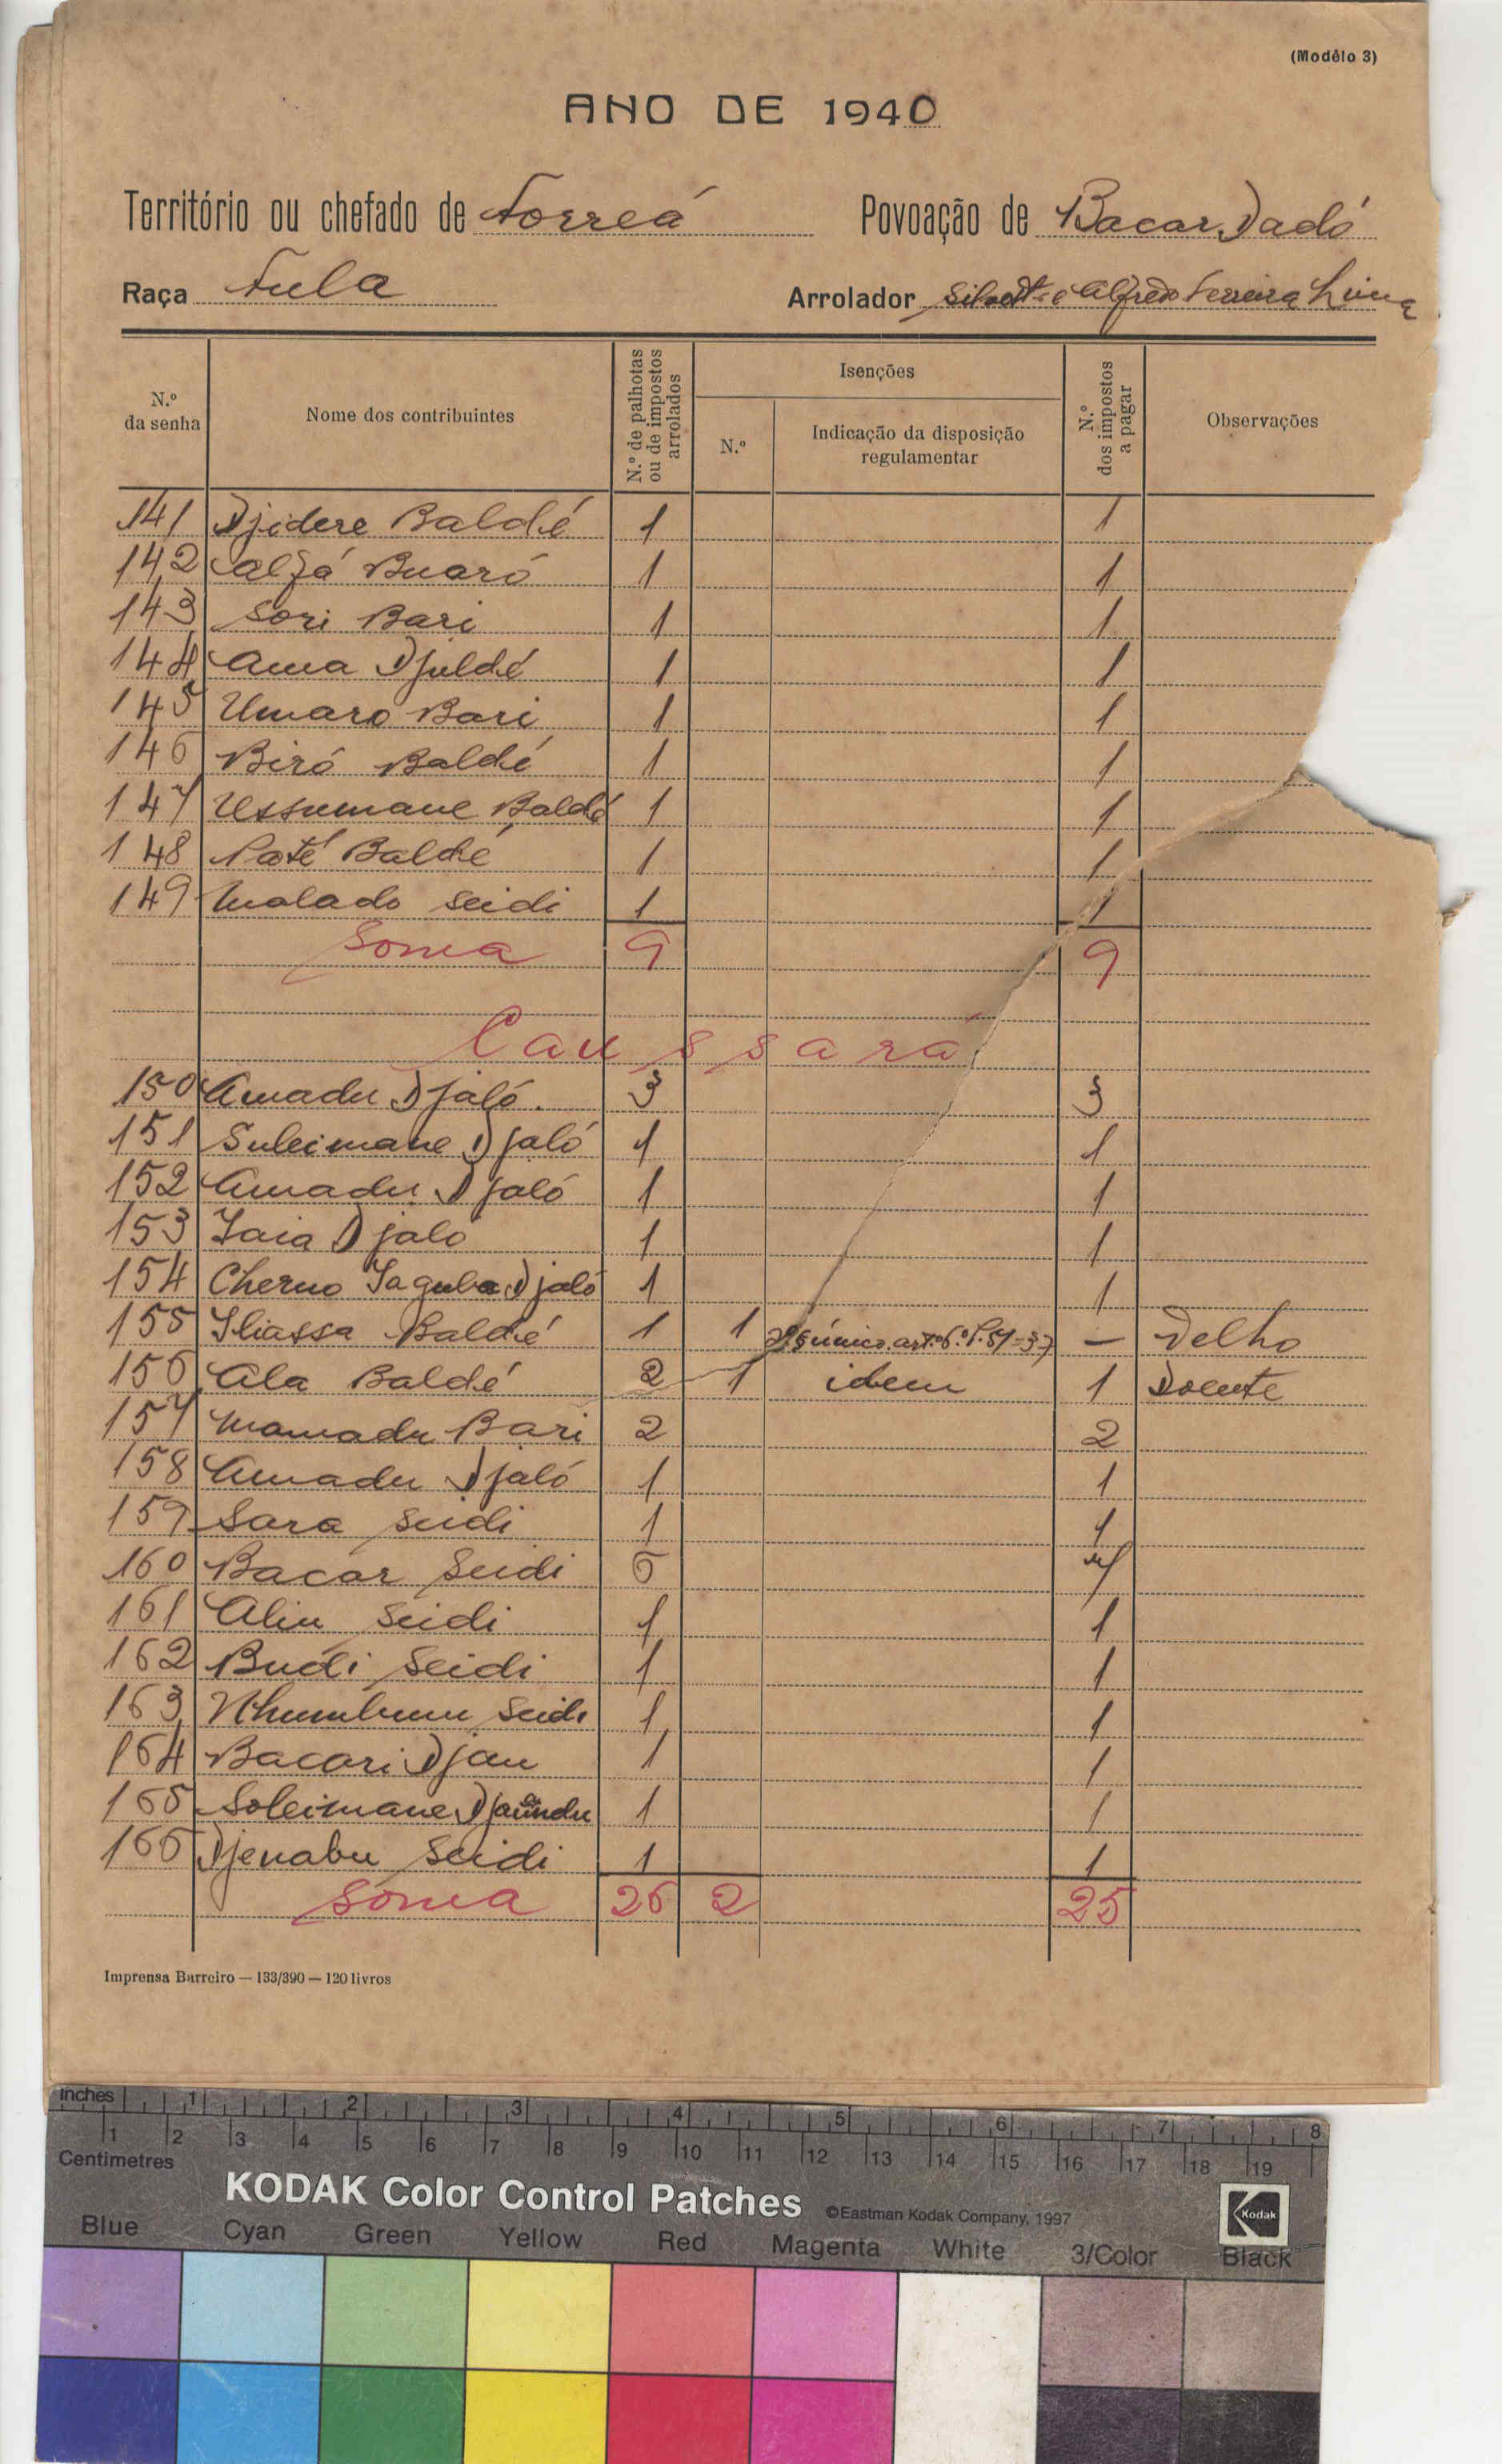 (Modêlo 3)
ANO DE 1940
Território ou chefado de Forreá Povoação de Bacar Dadó
Raça Fula Arrolador Silvestre Alfredo Ferreira Lima
N.º da senha Nome dos contribuintes N.º de palhotas ou de impostos arrolados Isenções N.º Indicação da disposição regulamentar N.º dos impostos a pagar Observações
141 Djidere Baldé 1 1
142 Alfá Buaró 1 1
143 Sori Bari 1 1
144 Ama Djuldé 1 1
145 Umaro Bari 1 1
146 Biró Baldé 1 1
147 Ussumane Baldé 1 1
148 Paté Baldé 1 1
149 Malado Seidi 1 1
Soma 9 9
Caussara
150 Amadu Djaló. 3 3
151 Suleimane Djaló 1 1
152 Amadu Djaló 1 1
153 Iaia Djalo 1 1
154 Cherno Iaguba Djaló 1 1
155 Iliassa Baldé 1 1 § único art.º 6.º — Velho
156 Ala Baldé 2 1 idem 1 Doente
157 Mamadu Bari 2 2
158 Amadu Djaló 1 1
159 Sara Seidi 1 1
160 Bacar Seidi 6
161 Aliu Seidi 1 1
162 Budi Seidi 1 1
163 Seidi 1 1
164 Bacari Djau 1 1
165 Soleimane 1 1
166 Djenabu Seidi 1 1
Soma 26 2 25
Imprensa Barreiro — 133/390 — 120 livros
inches 1 2 3 4 5 6 7 8
1 2 3 4 5 6 7 8 9 10 11 12 13 14 15 16 17 18 19
Centimetres
KODAK Color Control Patches ©Eastman Kodak Company, 1997 Kodak
Blue Cyan Green Yellow Red Magenta White 3/Color Black